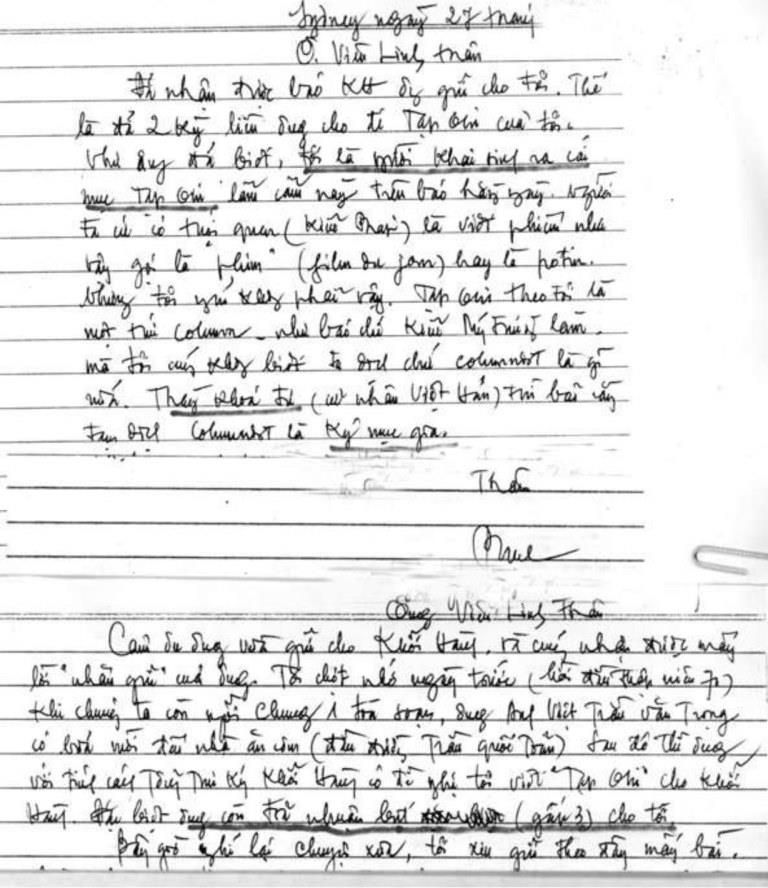 Sydney ngày 27 tháng
Ô. Viên Linh thân
Đã nhận được báo KH ông gửi cho tôi. Thế
là đã 2 kỳ liền ông cho đi Tạp Ghi của tôi.
Như ông đã biết, tôi là người khai sinh ra cái
mục Tạp Ghi lẩm cẩm này trên báo hàng ngày. Người
ta cứ có thói quen (Kiều Phong) là viết phiếm như
vậy gọi là "phim" (film du jour) hay là potin.
Nhưng tôi nghĩ không phải vậy. Tạp Ghi theo tôi là
một thứ column - như báo chí Kiều Mỹ thường làm.
mà tôi cũng không biết ta dịch chữ columnist là gì
nữa. Thầy Khoá Tư (cử nhân Việt Hán) thì bảo hãy
tạm dịch columnist là Ký mục gia.
Thân
Ông Viên Linh Thân
Cám ơn ông vừa gửi cho Khởi Hành, và cũng nhận được mấy
lời "nhắn gửi" của ông. Tôi chợt nhớ ngày trước (hồi đầu thập niên 70)
khi chúng ta còn ngồi chung 1 toà soạn, ông Anh Việt Trần Văn Trọng
có buổi mời đãi nhà ăn cơm (đầu đường Trần Quốc Toản) sau đó thì ông
với tư cách Tổng Thư Ký Khởi Hành có đề nghị tôi viết "Tạp Ghi" cho Khởi
Hành. Đặc biệt ông còn trả nhuận bút (gấp 3) cho tôi.
Bây giờ nghĩ lại chuyện xưa, tôi xin gửi theo đây mấy bài.